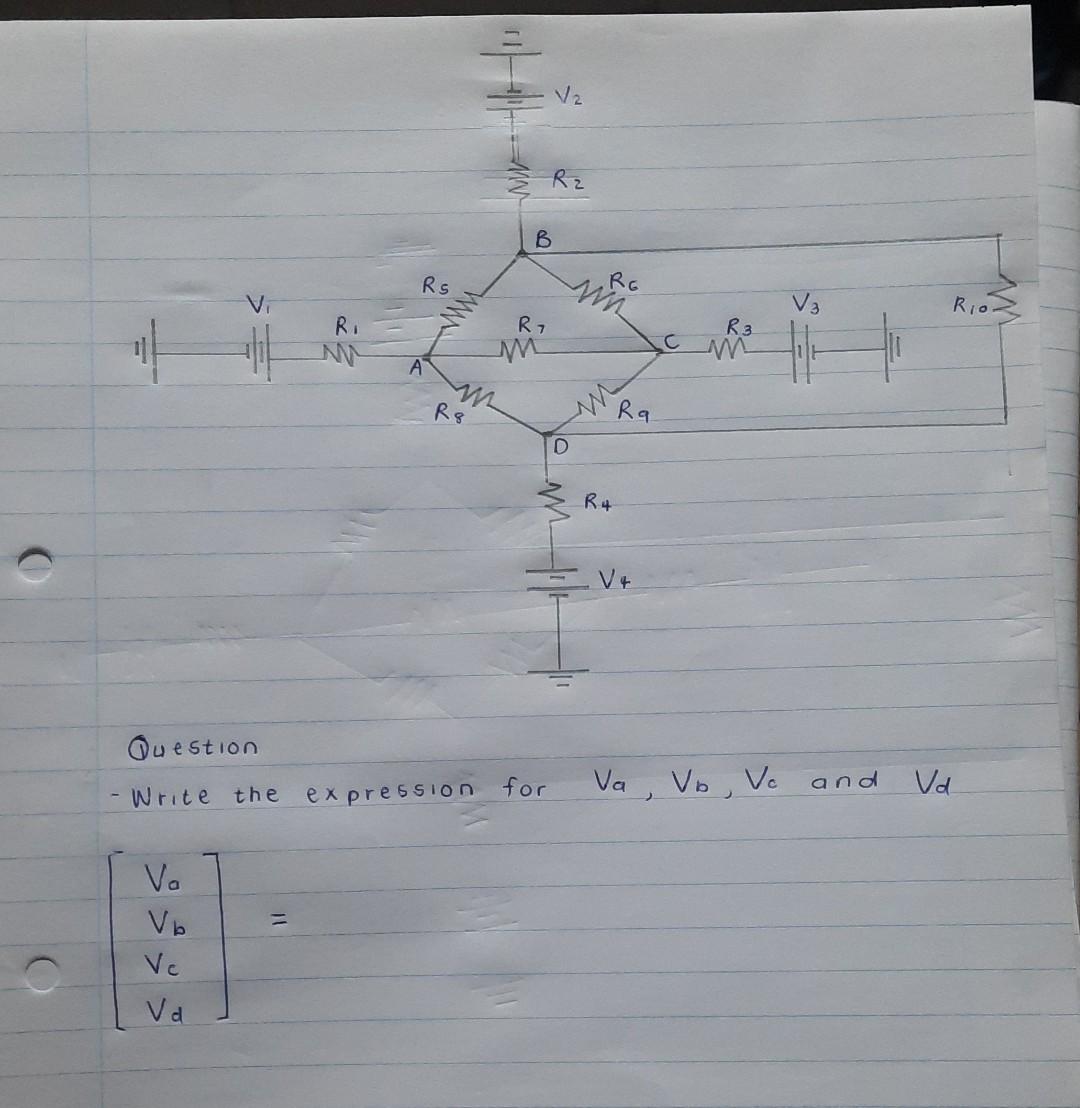 V2
R2
B
R5
R6
V1
R1
R7
V3
R10
A
C
R3
R8
R9
D
R4
V4
Question
- Write the expression for Va, Vb, Vc and Vd
Va
Vb
=
Vc
Vd